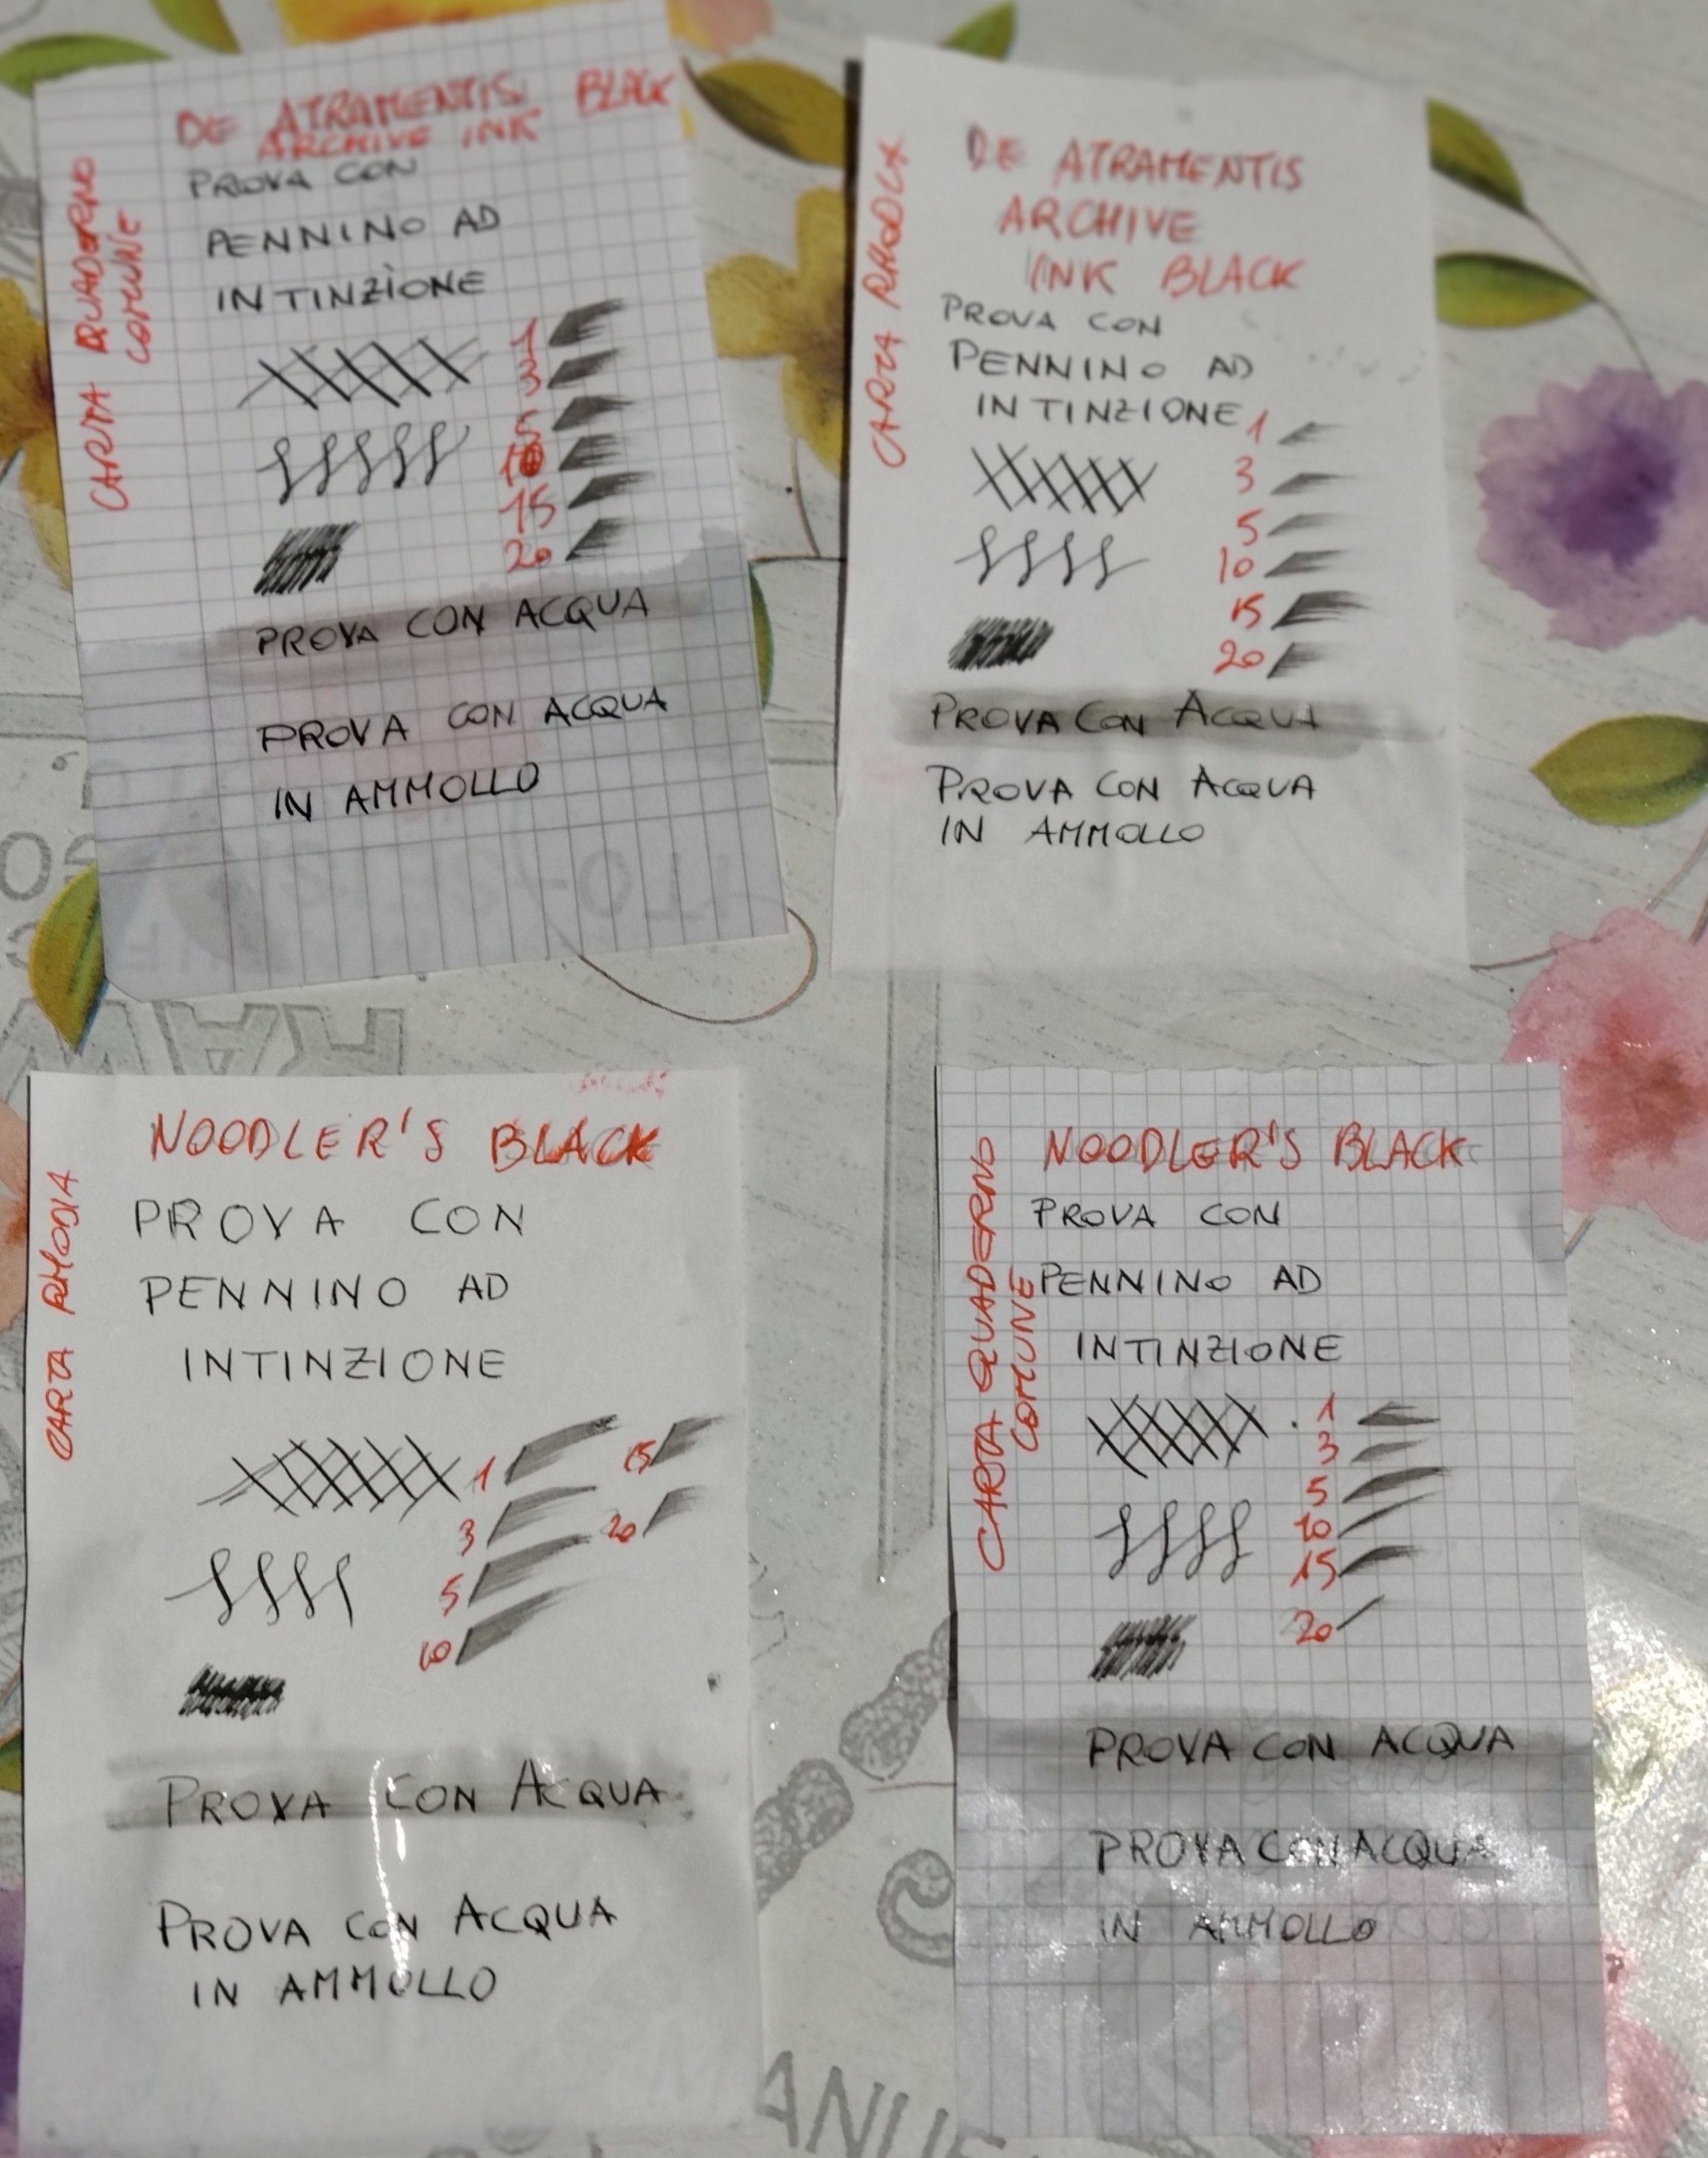 DE ATRAMENTIS BLACK
ARCHIVE INK
CARTA QUADERNO
COMUNE
PROVA CON
PENNINO AD
INTINZIONE
1
3
5
10
15
20
PROVA CON ACQUA
PROVA CON ACQUA
IN AMMOLLO
DE ATRAMENTIS
ARCHIVE
INK BLACK
CARTA RHODIA
PROVA CON
PENNINO AD
INTINZIONE
1
3
5
10
15
20
PROVA CON ACQUA
PROVA CON ACQUA
IN AMMOLLO
NOODLER'S BLACK
CARTA RHODIA
PROVA CON
PENNINO AD
INTINZIONE
1
3
5
10
15
20
PROVA CON ACQUA
PROVA CON ACQUA
IN AMMOLLO
NOODLER'S BLACK
CARTA QUADERNO
COMUNE
PROVA CON
PENNINO AD
INTINZIONE
1
3
5
10
15
20
PROVA CON ACQUA
PROVA CON ACQUA
IN AMMOLLO